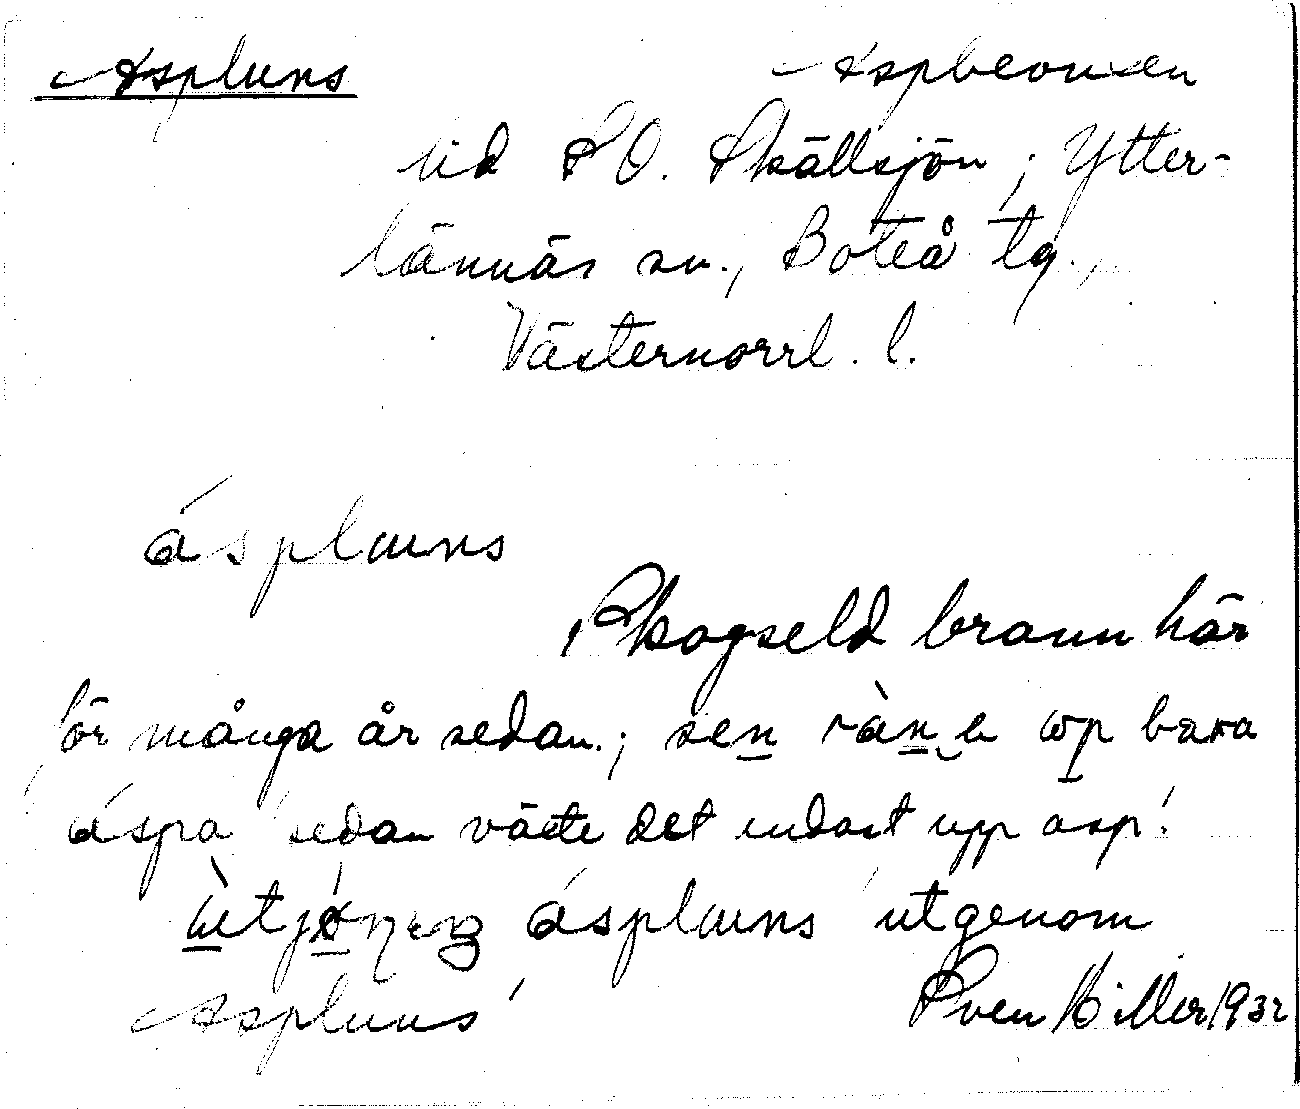 Aspluns
Aspbevuxen
lid SO. Skällsjön; Ytter-
lännäs sn., Boteå tg.,
Västernorrl. l.
áspluns
Skogseld brann här
för många år sedan; sen ràn e up bara
áspa 'sedan växte det endast upp asp'.
áspluns 'utgenom
Aspluns'
Sven Hiller 1932